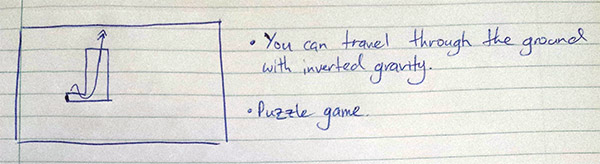 • You can travel through the ground
with inverted gravity.
• Puzzle game.